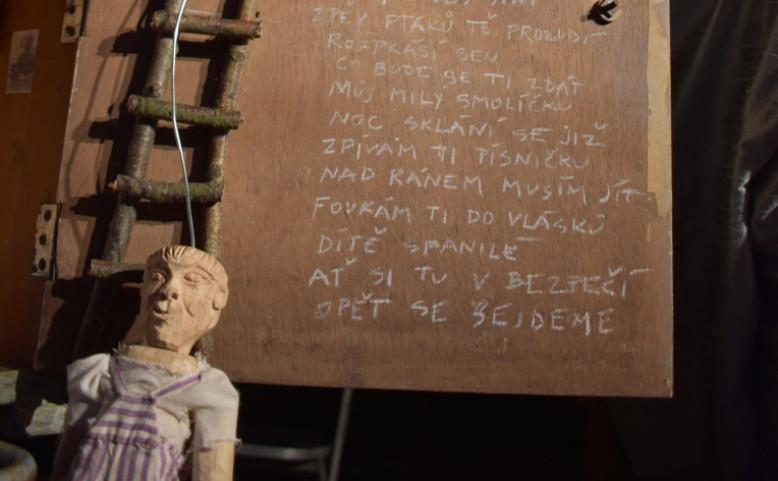 ZPĚV PTÁKŮ TĚ PROBUDÍ
ROZPRÁŠÍ SEN
CO BUDE SE TI ZDÁT
MŮJ MILÝ SMOLÍČKU
NOC SKLÁNÍ SE JIŽ
ZPÍVÁM TI PÍSNIČKU
NAD RÁNEM MUSÍM JÍT
FOUKÁM TI DO VLÁSKŮ
DÍTĚ SPANILÉ
AŤ SI TU V BEZPEČÍ
OPĚT SE SEJDEME